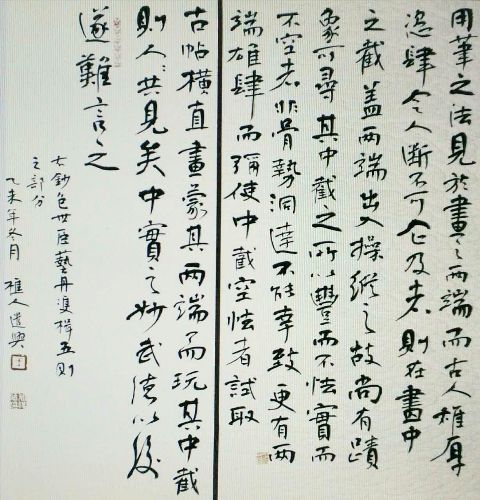 用筆之法見於畫之兩端而古人雄厚
恣肆令人斷不可企及者則在畫中
之截蓋兩端出入操縱之故尚有蹟
象可尋其中截之所以豐而不怯實而
不空者非骨勢洞達不能幸致更有兩
端雄肆而彌使中截空怯者試取
古帖橫直畫蒙其兩端而玩其中截
則人々共見矣中實之妙武德以後
遂難言之
右鈔包世臣藝舟雙楫五則
之部分
乙未年冬月 樵人道興